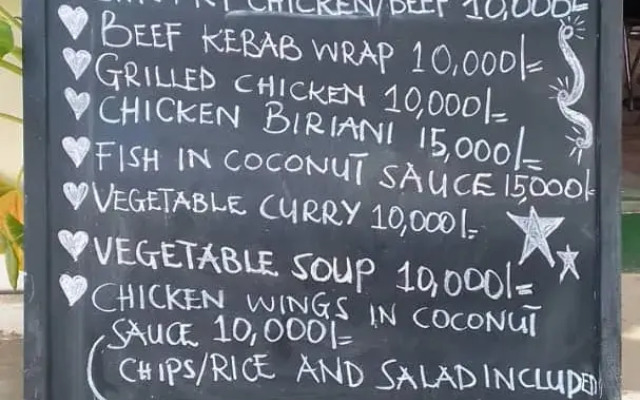 CHICKEN/BEEF 10,000/=
BEEF KEBAB WRAP 10,000/=
GRILLED CHICKEN 10,000/=
CHICKEN BIRIANI 15,000/=
FISH IN COCONUT SAUCE 15,000/-
VEGETABLE CURRY 10,000/=
VEGETABLE SOUP 10,000/=
CHICKEN WINGS IN COCONUT
SAUCE 10,000/=
(CHIPS/RICE AND SALAD INCLUDED